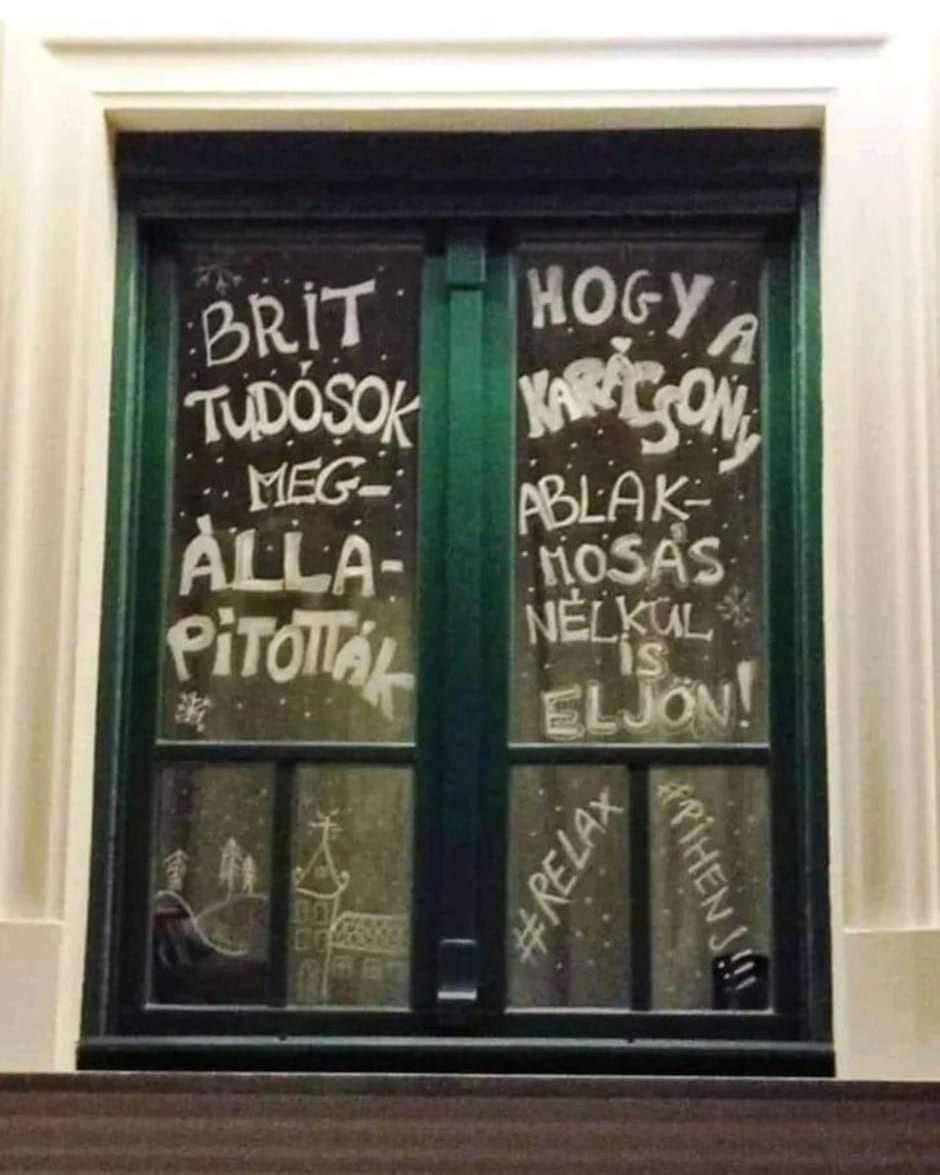 BRIT
TUDÓSOK
MEG-
ÁLLA-
PÍTOTTÁK
HOGY A
KARÁCSONY
ABLAK-
MOSÁS
NÉLKÜL
IS
ELJÖN!
#RELAX
#PIHENJ!!!